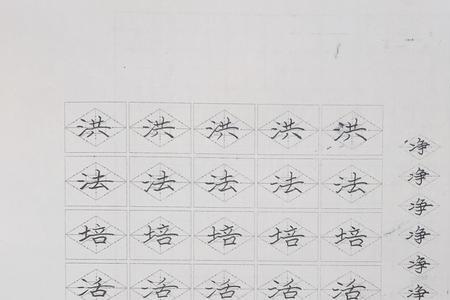 洪洪洪洪洪
法法法法法
培培培培培
活活活活活
净
净
净
净
净
净